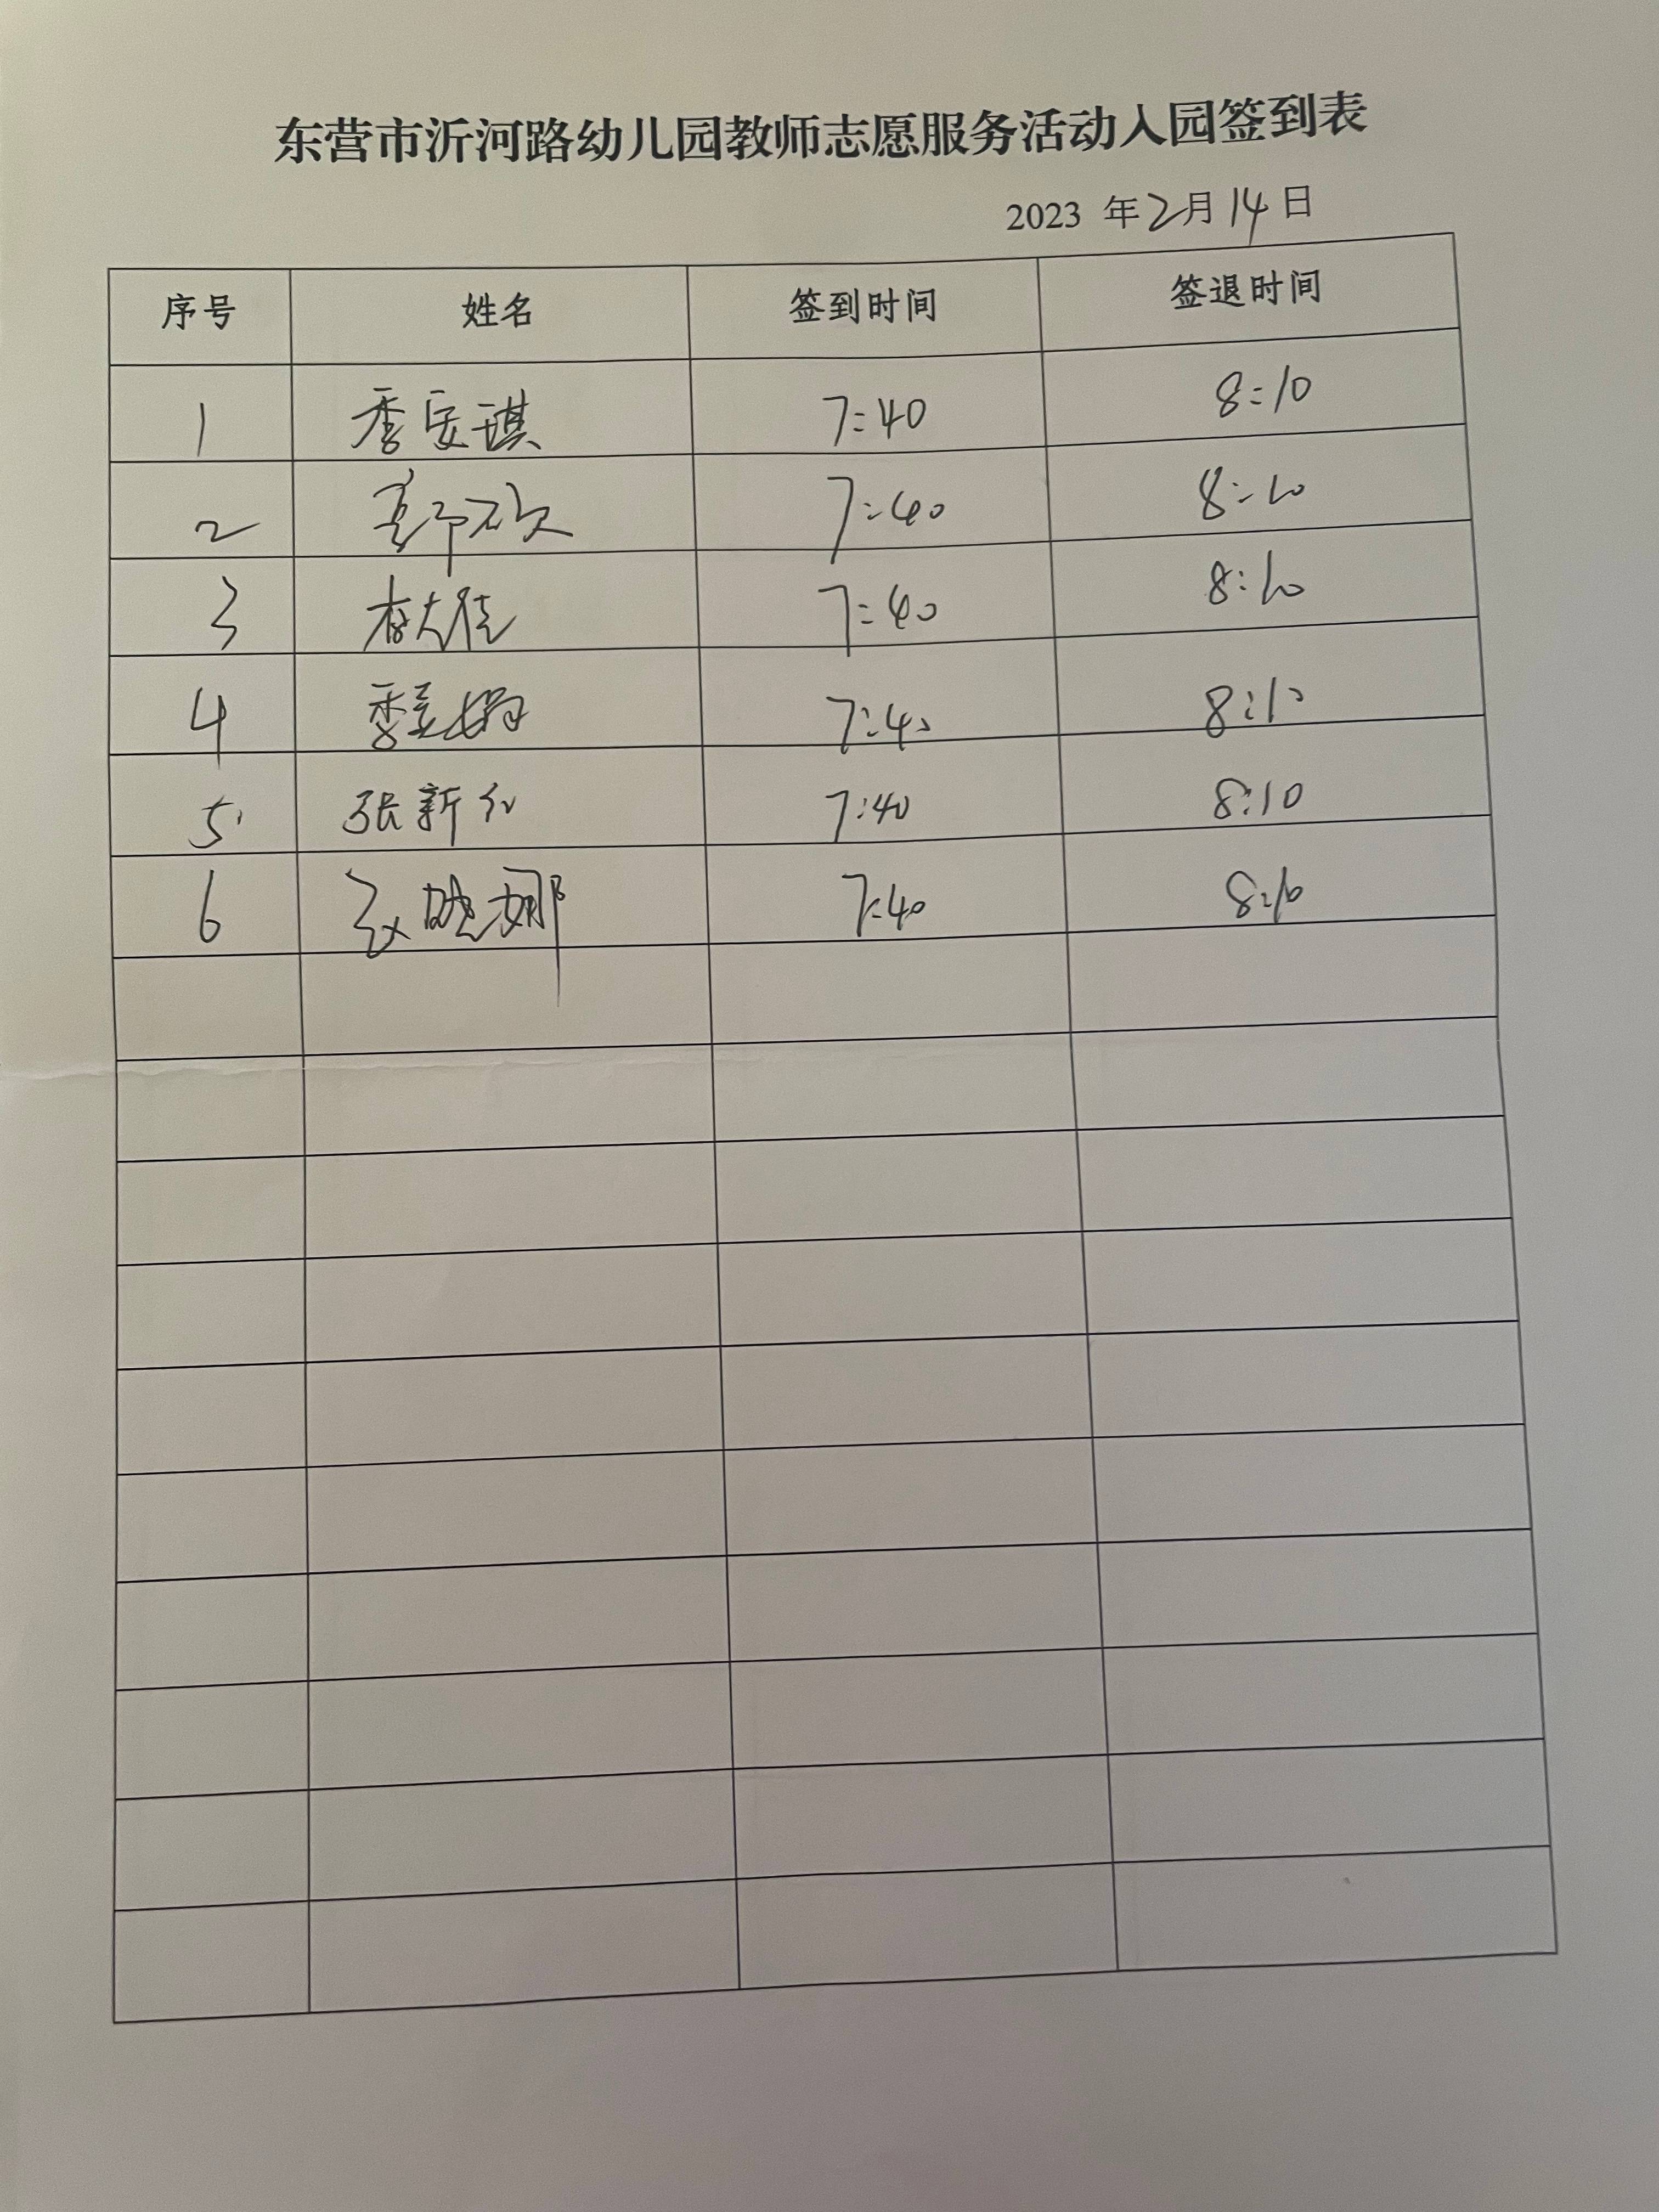 东营市沂河路幼儿园教师志愿服务活动入园签到表
2023 年2月14日
序号 姓名 签到时间 签退时间
1 季安琪 7:40 8:10
2 7:40 8:10
3 7:40 8:10
4 季 7:40 8:10
5 张新 7:40 8:10
6 晓娜 7:40 8:10